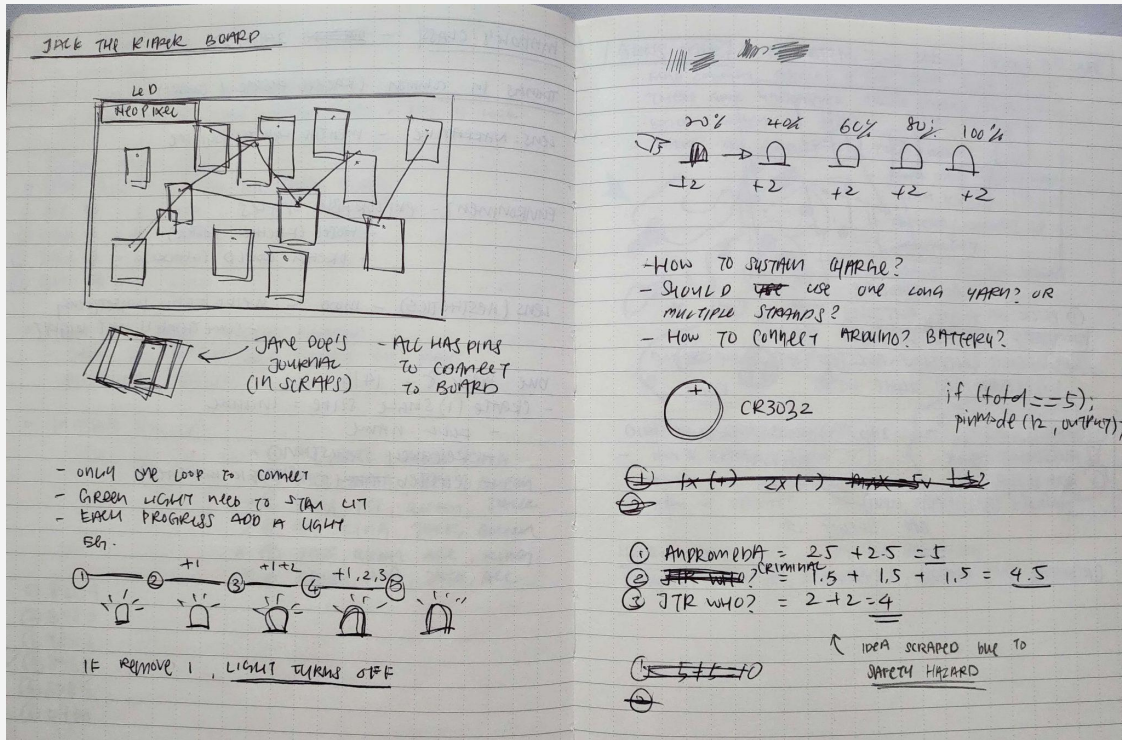 JACK THE RIPPER BOARD
LED
NEOPIXEL
JANE DOE'S
JOURNAL
(IN SCRAPS)
- ALL HAS PINS
TO CONNECT
TO BOARD
- ONLY ONE LOOP TO CONNECT
- GREEN LIGHT NEED TO STAY LIT
- EACH PROGRESS ADD A LIGHT
EG.
+1 +1+2 +1,2,3
1 2 3 4 5
IF REMOVE 1, LIGHT TURNS OFF
20% 40% 60% 80% 100%
+2 +2 +2 +2 +2
- HOW TO SUSTAIN CHARGE?
- SHOULD USE ONE LONG YARN? OR
MULTIPLE STRANDS?
- HOW TO CONNECT ARDUINO? BATTERY?
+
CR3032
if (total==5);
pinMode(12, OUTPUT);
1 1x (+) 2x (-) MAX = 5V
2
1 ANDROMEDA = 2.5 + 2.5 = 5
2 JTR WHO? CRIMINAL = 1.5 + 1.5 + 1.5 = 4.5
3 JTR WHO? = 2 + 2 = 4
IDEA SCRAPED DUE TO
SAFETY HAZARD
1 5+5=10
2